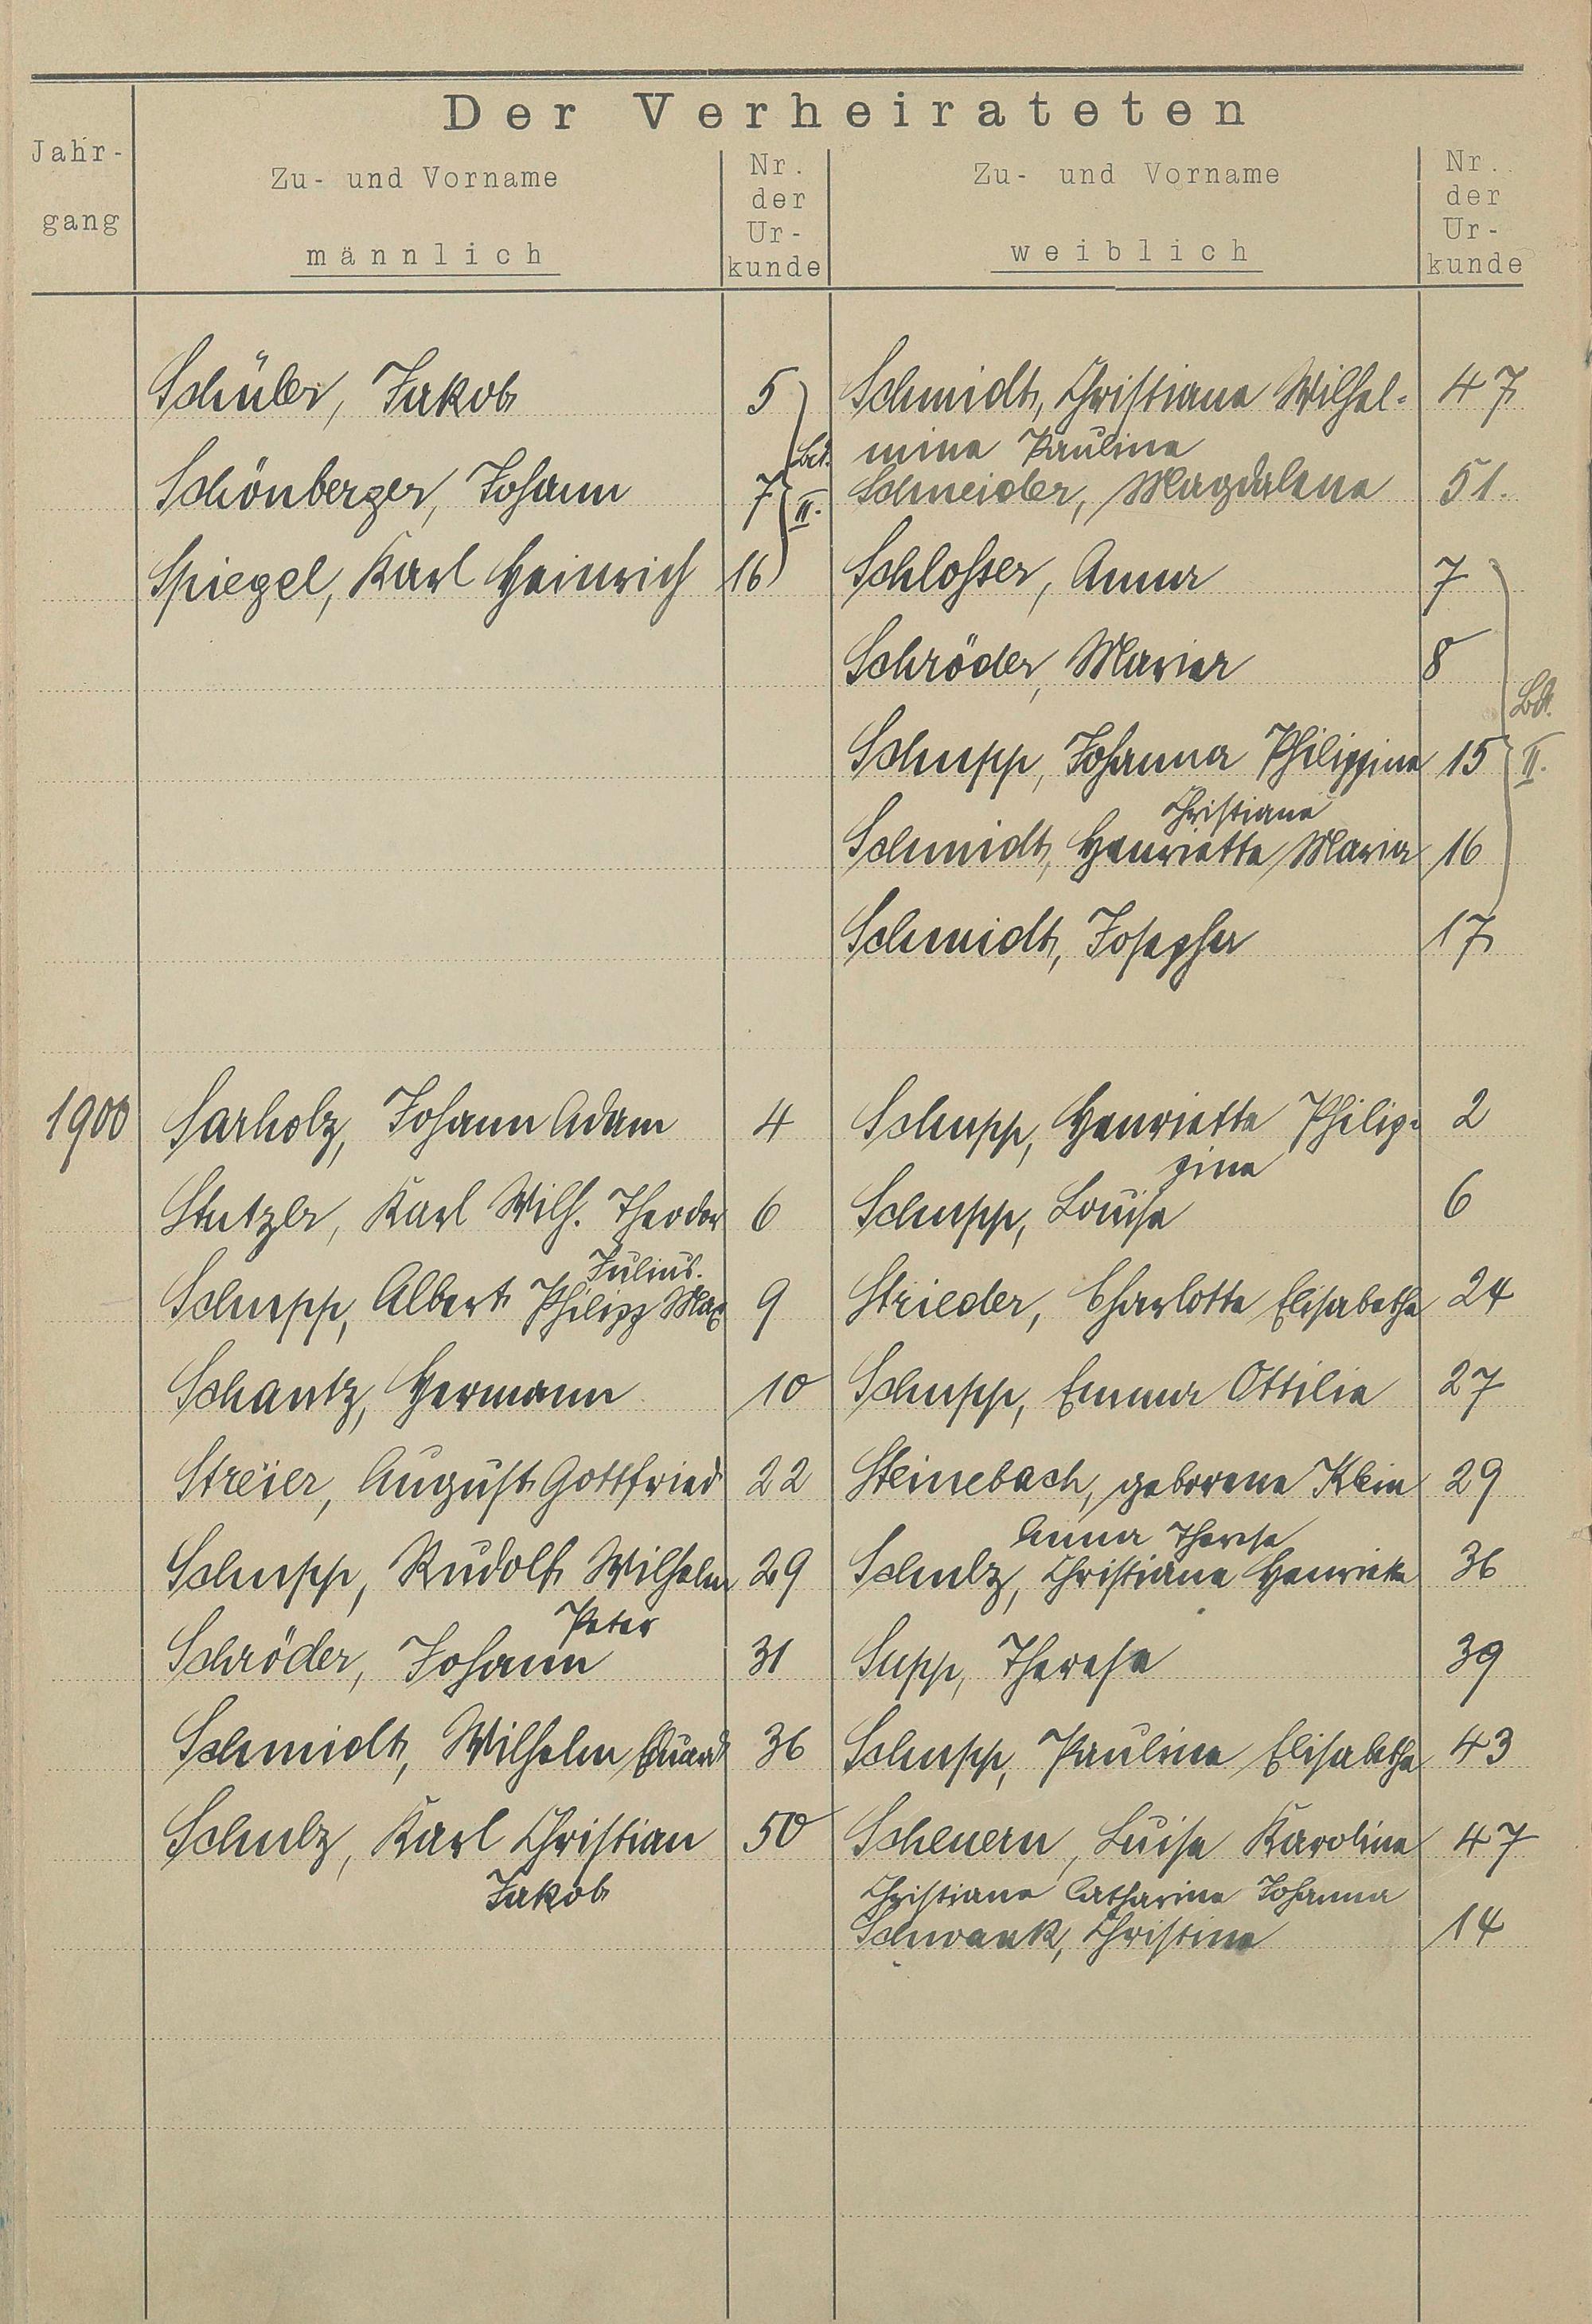 Der Verheirateten
Jahr-
gang
Zu- und Vorname
männlich
Nr.
der
Ur-
kunde
Zu- und Vorname
weiblich
Nr.
der
Ur-
kunde
Schüler, Jakob 5 Schmidt, Christiane Wilhel- 47
Bd. mine Pauline
Schönberger, Johann 7 II. Schneider, Magdalena 51.
Spiegel, Karl Heinrich 16 Schlosser, Anna 7
Schröder, Maria 8
Bd.
Schupp, Johanna Philippine 15 II.
Christiane
Schmidt, Henriette Maria 16
Schmidt, Josepha 17
1900 Sarholz, Johann Adam 4 Schupp, Henriette Philip- 2
pine
Stutzer, Karl Wilh. Theodor 6 Schupp, Louise 6
Julius.
Schupp, Albert Philipp Max 9 Strieder, Charlotte Elisabetha 24
Schantz, Hermann 10 Schupp, Emma Ottilie 27
Streier, August Gottfried 22 Steinebach, geborene Klein 29
Anna Therese
Schupp, Rudolf Wilhelm 29 Schulz, Christiane Henriette 36
Peter
Schröder, Johann 31 Supp, Therese 39
Schmidt, Wilhelm Eduard 36 Schupp, Pauline Elisabetha 43
Schulz, Karl Christian 50 Scheuern, Luise Karoline 47
Jakob Christiane Catharine Johanna
Schwank, Christine 14